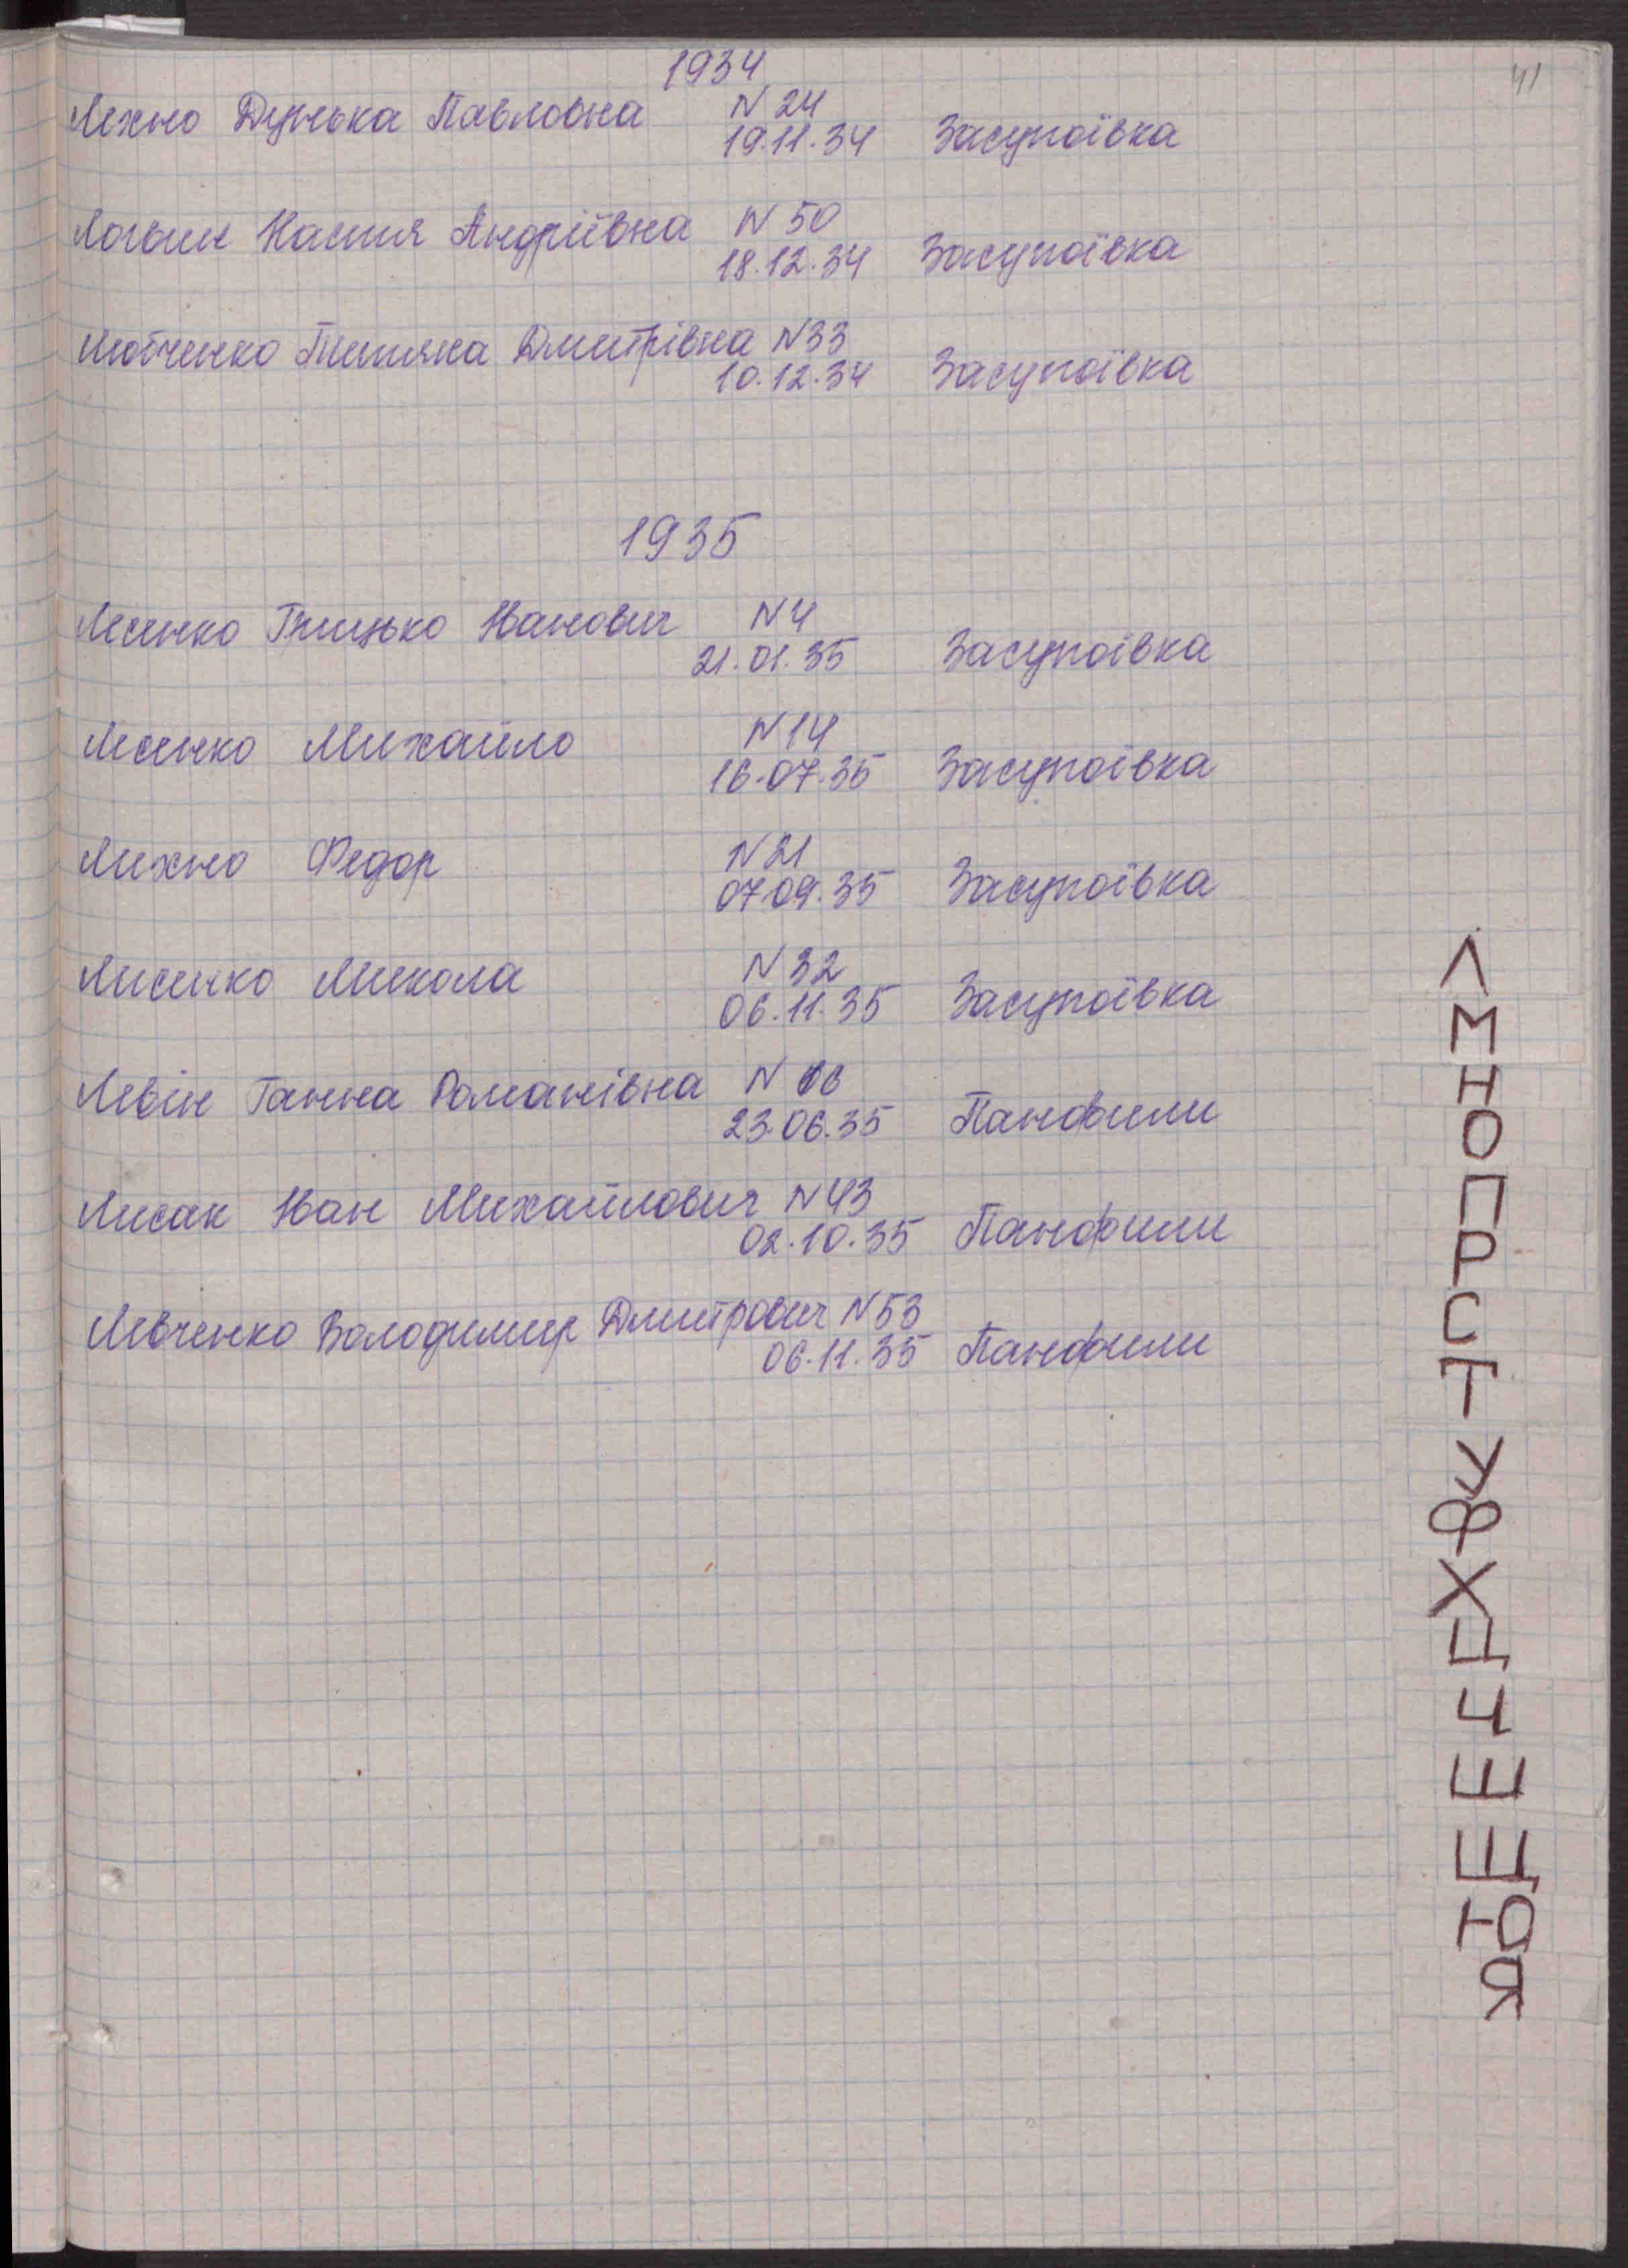 41
1934
Лехно Дунька Павловна N 24
19.11.34 Засупоївка
Логвин Настя Андріївна N 50
18.12.34 Засупоївка
Любченко Тетяна Дмитрівна N33
10.12.34 Засупоївка
1935
Лесенко Грицько Іванович N4
21.01.35 Засупоївка
Лесенко Михайло N14
16.07.35 Засупоївка
Лихно Федор N21
07.09.35 Засупоївка
Лисенко Микола N32
06.11.35 Засупоївка
Левін Ганна Романівна N
23.06.35 Панфили
Лисак Іван Михайлович N43
02.10.35 Панфили
Левченко Володимир Дмитрович N53
06.11.35 Панфили
Л
М
Н
О
П
Р
С
Т
У
Ф
Х
Ц
Ч
Ш
Щ
Ю
Я